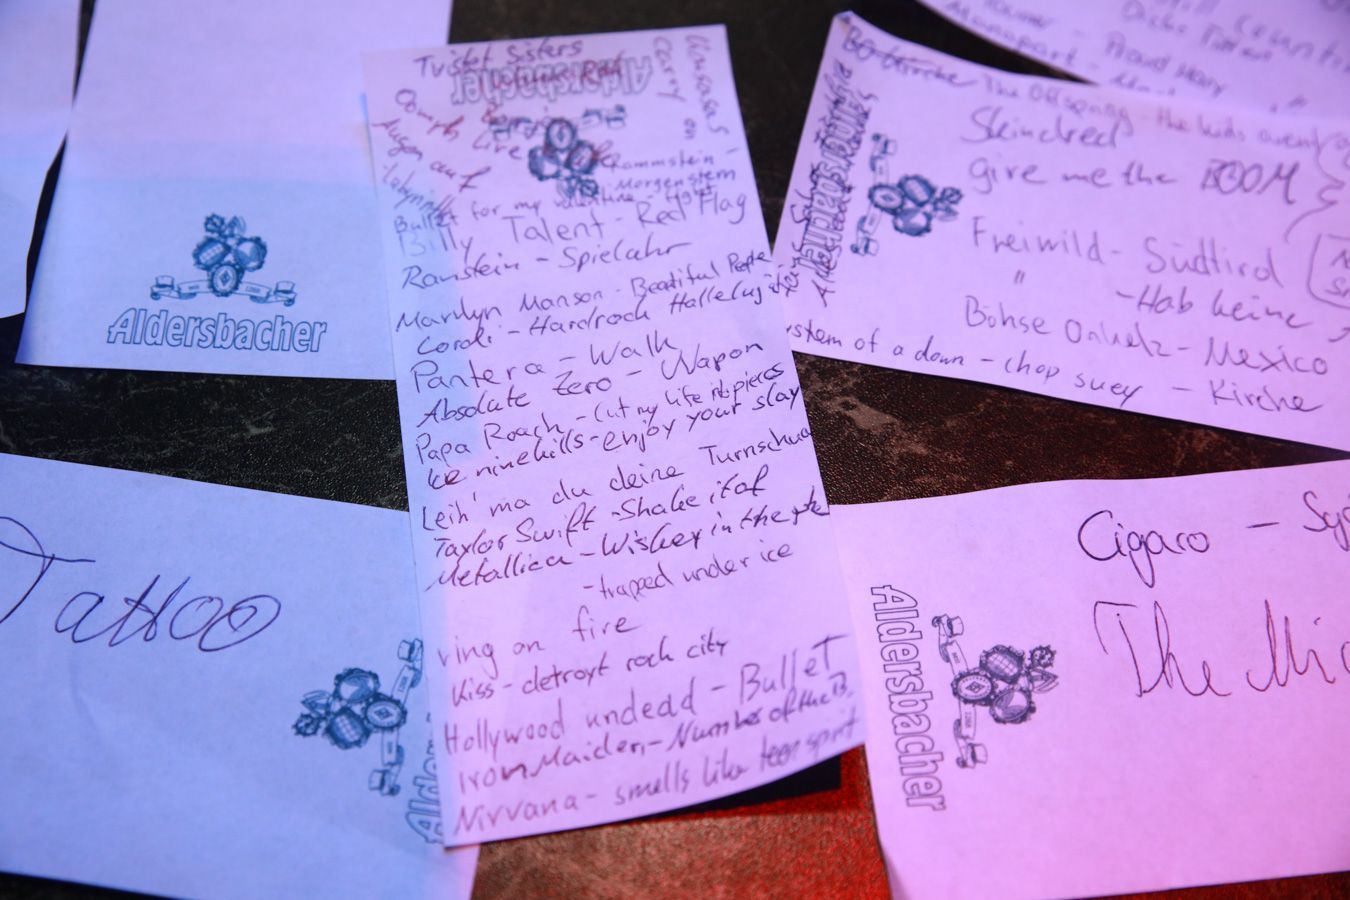 Aldersbacher
Tattoo
Twistet Sisters
Aldersbacher
Kansas
Carry
on
Oomph
Augen auf
Live
Rammstein -
Morgenstern
Bullet for my valentine - Hot
Billy Talent - Red Flag
Ramstein - Spieluhr
Marilyn Manson - Beatiful People
- Hardrock Halleluja
Pantera - Walk
Absolute Zero - Wapon
Papa Roach - Cut my life into pieces
Ice ninekills - enjoy your slay
Leih' ma du deine Turnschua
Taylor Swift - Shake it of
Metallica - Wiskey in the
- trapped under ice
ring on fire
Kiss - detroyt rock city
Hollywood undead - Bullet
Iron Maiden - Number of the B.
Nirvana - smells like teen spirit
Proud Mary
"
Kirche The Offspring - the kids arent
Skindred
give me the BOOM
Freiwild - Südtirol
" - Hab keine
Böhse Onkelz - Mexico
stem of a down - chop suey - Kirche
Aldersbacher
Cigaro - Sys
The Mi
Aldersbacher
Alders